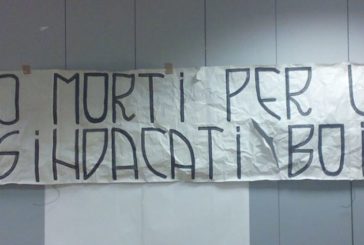 O MORTI PER U
SINDACATI BOI